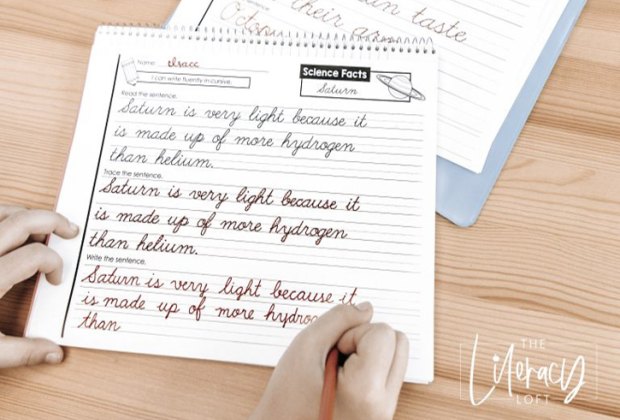 taste
their
Name:
I can write fluently in cursive.
Science Facts
Saturn
Read the sentence.
Saturn is very light because it
is made up of more hydrogen
than helium.
Trace the sentence.
Saturn is very light because it
is made up of more hydrogen
than helium.
Write the sentence.
Saturn is very light because it
is made up of more hydrog
than
THE
Literacy
LOFT